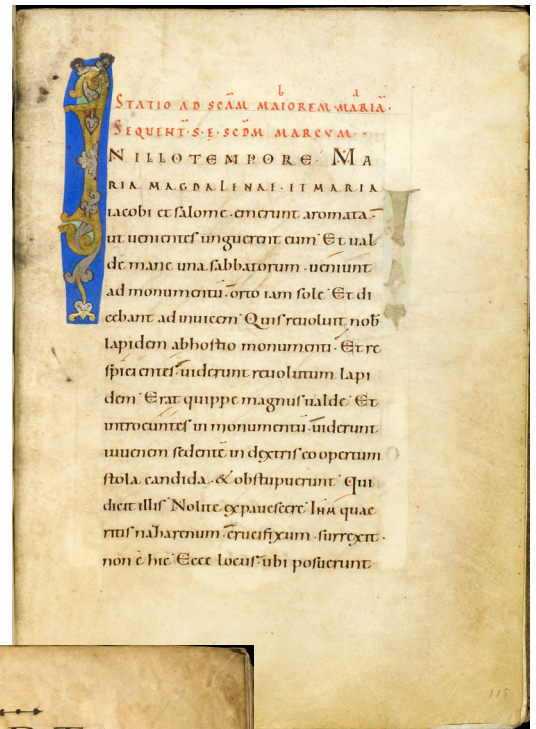 STATIO AD SCĀM MAIOREM MARIĀ·
SEQUENT̄·S·E·SCDM MARCVM·
NILLO TEMPORE· MA
RIA MAGDALENAE· ET MARIA
iacobi et salome· emerunt aromata·
ut uenientes unguerent eum· Et ual
de mane una sabbatorum· ueniunt
ad monumentū· orto iam sole· Et di
cebant ad inuicem· Quis reuoluit nob̄
lapidem abhostio monumenti· Et re
spicientes· uiderunt reuolutum lapi
dem· Erat quippe magnus ualde· Et
introeuntes in monumentū· uiderunt
iuuenem sedentē in dextris coopertum
stola candida· & obstupuerunt· Qui
dicit illis· Nolite expauescere· Ihm quae
ritis naȝarenum· crucifixum· surrexit·
non ē hic· Ecce locus· ubi posuerunt
115